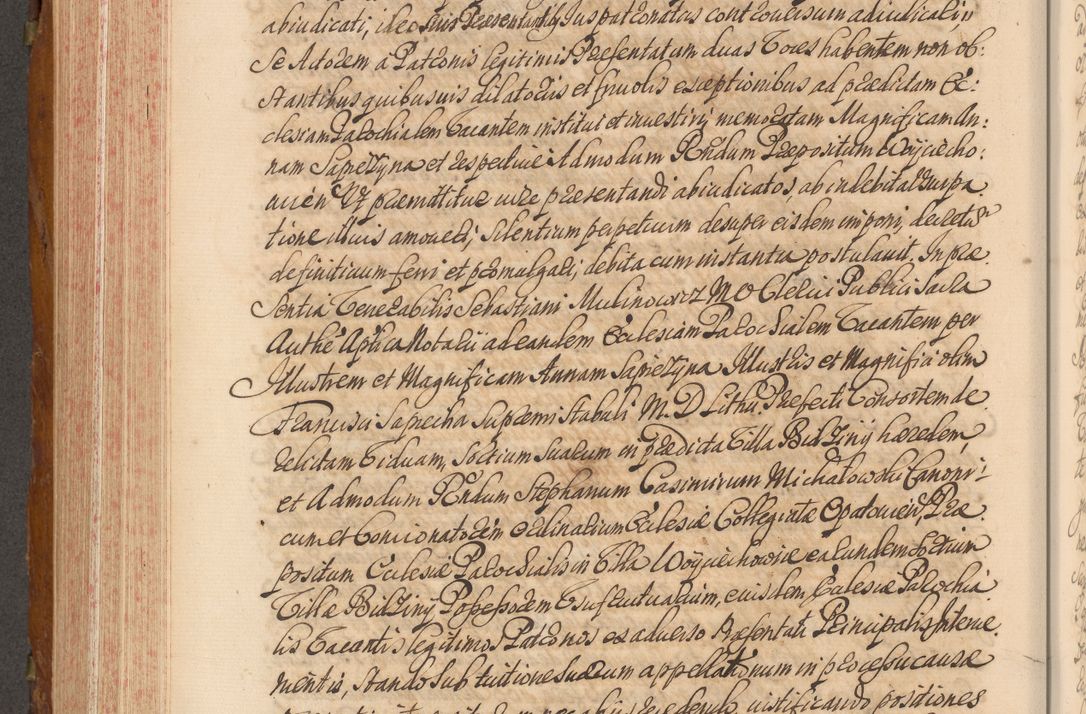 abiudicati, ideo suis Praesentatis Jus patronatus controversum adiudicari
Se Actorem a Patronis legitimis Praesentatum duas Voces habentem non ob:
stantibus quibusvis dilatoriis et frivolis exceptionibus ad praedictam Ec:
clesiam Parochialem Vacantem institui et investiri, memoratam Magnificam Dn:
nam Sapiezyna et respective Admodum Rndum Praepositum Woyciecho:
vien Ut praemittitur iure praesentandi abiudicatos, ab indebita Usurpa
tione illius amoveri, silentium perpetuum desuper eisdem imponi, decreta
definitivum ferri et promulgari, debita cum instantia postulavit. In prae
sentia Venerabilis Sebastiani Mulinowicz M O Clerici Publici Sacra
Authe Aplica Notarij ad eandem Ecclesiam Parochialem Vacantem per
Illustrem et Magnificam Annam Sapiezyna Illustris et Magnifici olim
Francisci Sapiecha Supremi Stabuli M. D. Lithu. Praefecti Consortem de
relictam Viduam, Sortium Suarum in praedicta Villa Bidziny haeredem,
et Admodum Rndum Stephanum Casimirum Michałowski Canoni:
cum et Concionatorem ordinarium Ecclesiae Collegiatae Opatovien, Prae
positum Ecclesiae Parochialis in Villa Woyciechowice earundem Sortium
Villae Bidziny Possessorem Usufructuarium, eiusdem Ecclesiae Parochia
lis Vacantis legitimos Patronos ex adverso Praesentati Principalis Interve
nientis, stando sub tuitione suarum appellationum in processu causae
positiones